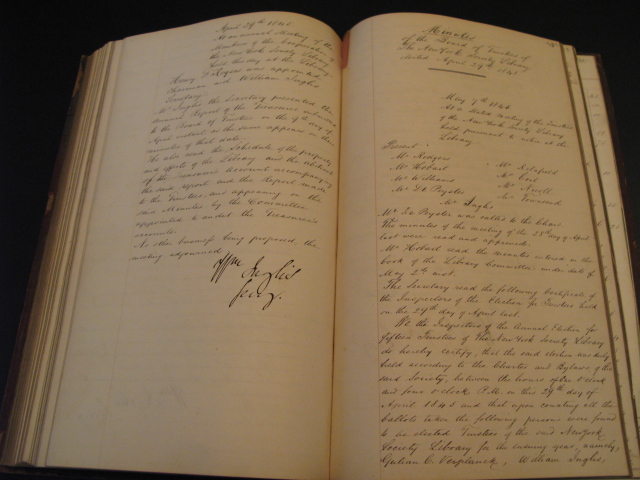 April 29th 1845
At an annual Meeting of the
Members of the Corporation of
the New York Society Library
held this day at the Library
Henry D Rogers was appointed
Chairman and William Inglis
Secretary.
Mr Inglis the Secretary presented the
Annual Report of the Treasurer
to the Board of Trustees on the 9th day of
April instant as the same appears in the
minutes of that date.
He also read the Schedule of the property
and effects of the Library and the abstract
of the Treasurers account accompanying
the said report and the Report made
to the Trustees, and appearing on the
said Minutes by the Committee
appointed to audit the Treasurer's
accounts.
No other business being proposed, the
meeting adjourned
Wm Inglis
Secy.
Minutes
of the Board of Trustees of
The New York Society Library
elected April 29th 1845
May 7th 1845
At a stated meeting of the Trustees
of the New York Society Library
held pursuant to notice at the
Library
Present
Mr Rodgers
Mr Hobart
Mr Williams
Mr De Peyster
Mr
Mr
Mr Nevill
Mr Townsend
Mr Inglis
Mr De Peyster was called to the Chair
The minutes of the meeting of the 28th day of April
last were read and approved.
Mr Hobart read the minutes entered in the
book of the Library Committee under date of
May 2nd inst.
The Secretary read the following Certificate of
the Inspectors of the Election for Trustees held
on the 29th day of April last.
We the Inspectors of the Annual Election for
fifteen Trustees of The New York Society Library
do hereby certify, that the said election was duly
held according to the Charter and Bylaws of the
said Society, between the hours of o'clock
and four o'clock P.M. on this 29th day of
April 1845 and that upon counting all the
ballots taken the following persons were found
to be elected Trustees of the said New York
Society Library for the ensuing year, namely,
Gulian C. Verplanck, William Inglis,